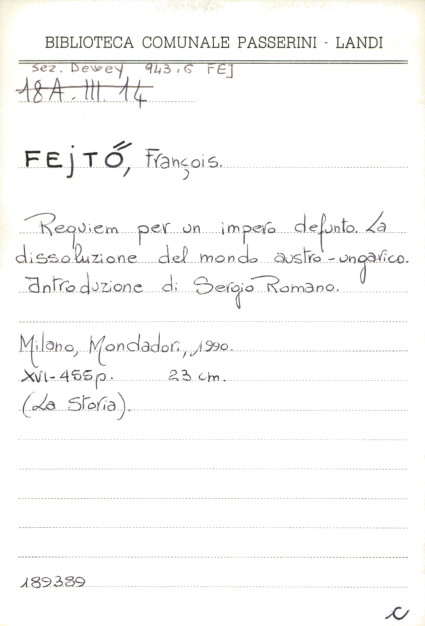 BIBLIOTECA COMUNALE PASSERINI - LANDI
sez. Dewey 943.6 FEJ
18A.III.14
FEJTŐ, François.
Requiem per un impero defunto. La
dissoluzione del mondo austro-ungarico.
Introduzione di Sergio Romano.
Milano, Mondadori, 1990.
XVI-455p. 23 cm.
(La Storia).
189389
C